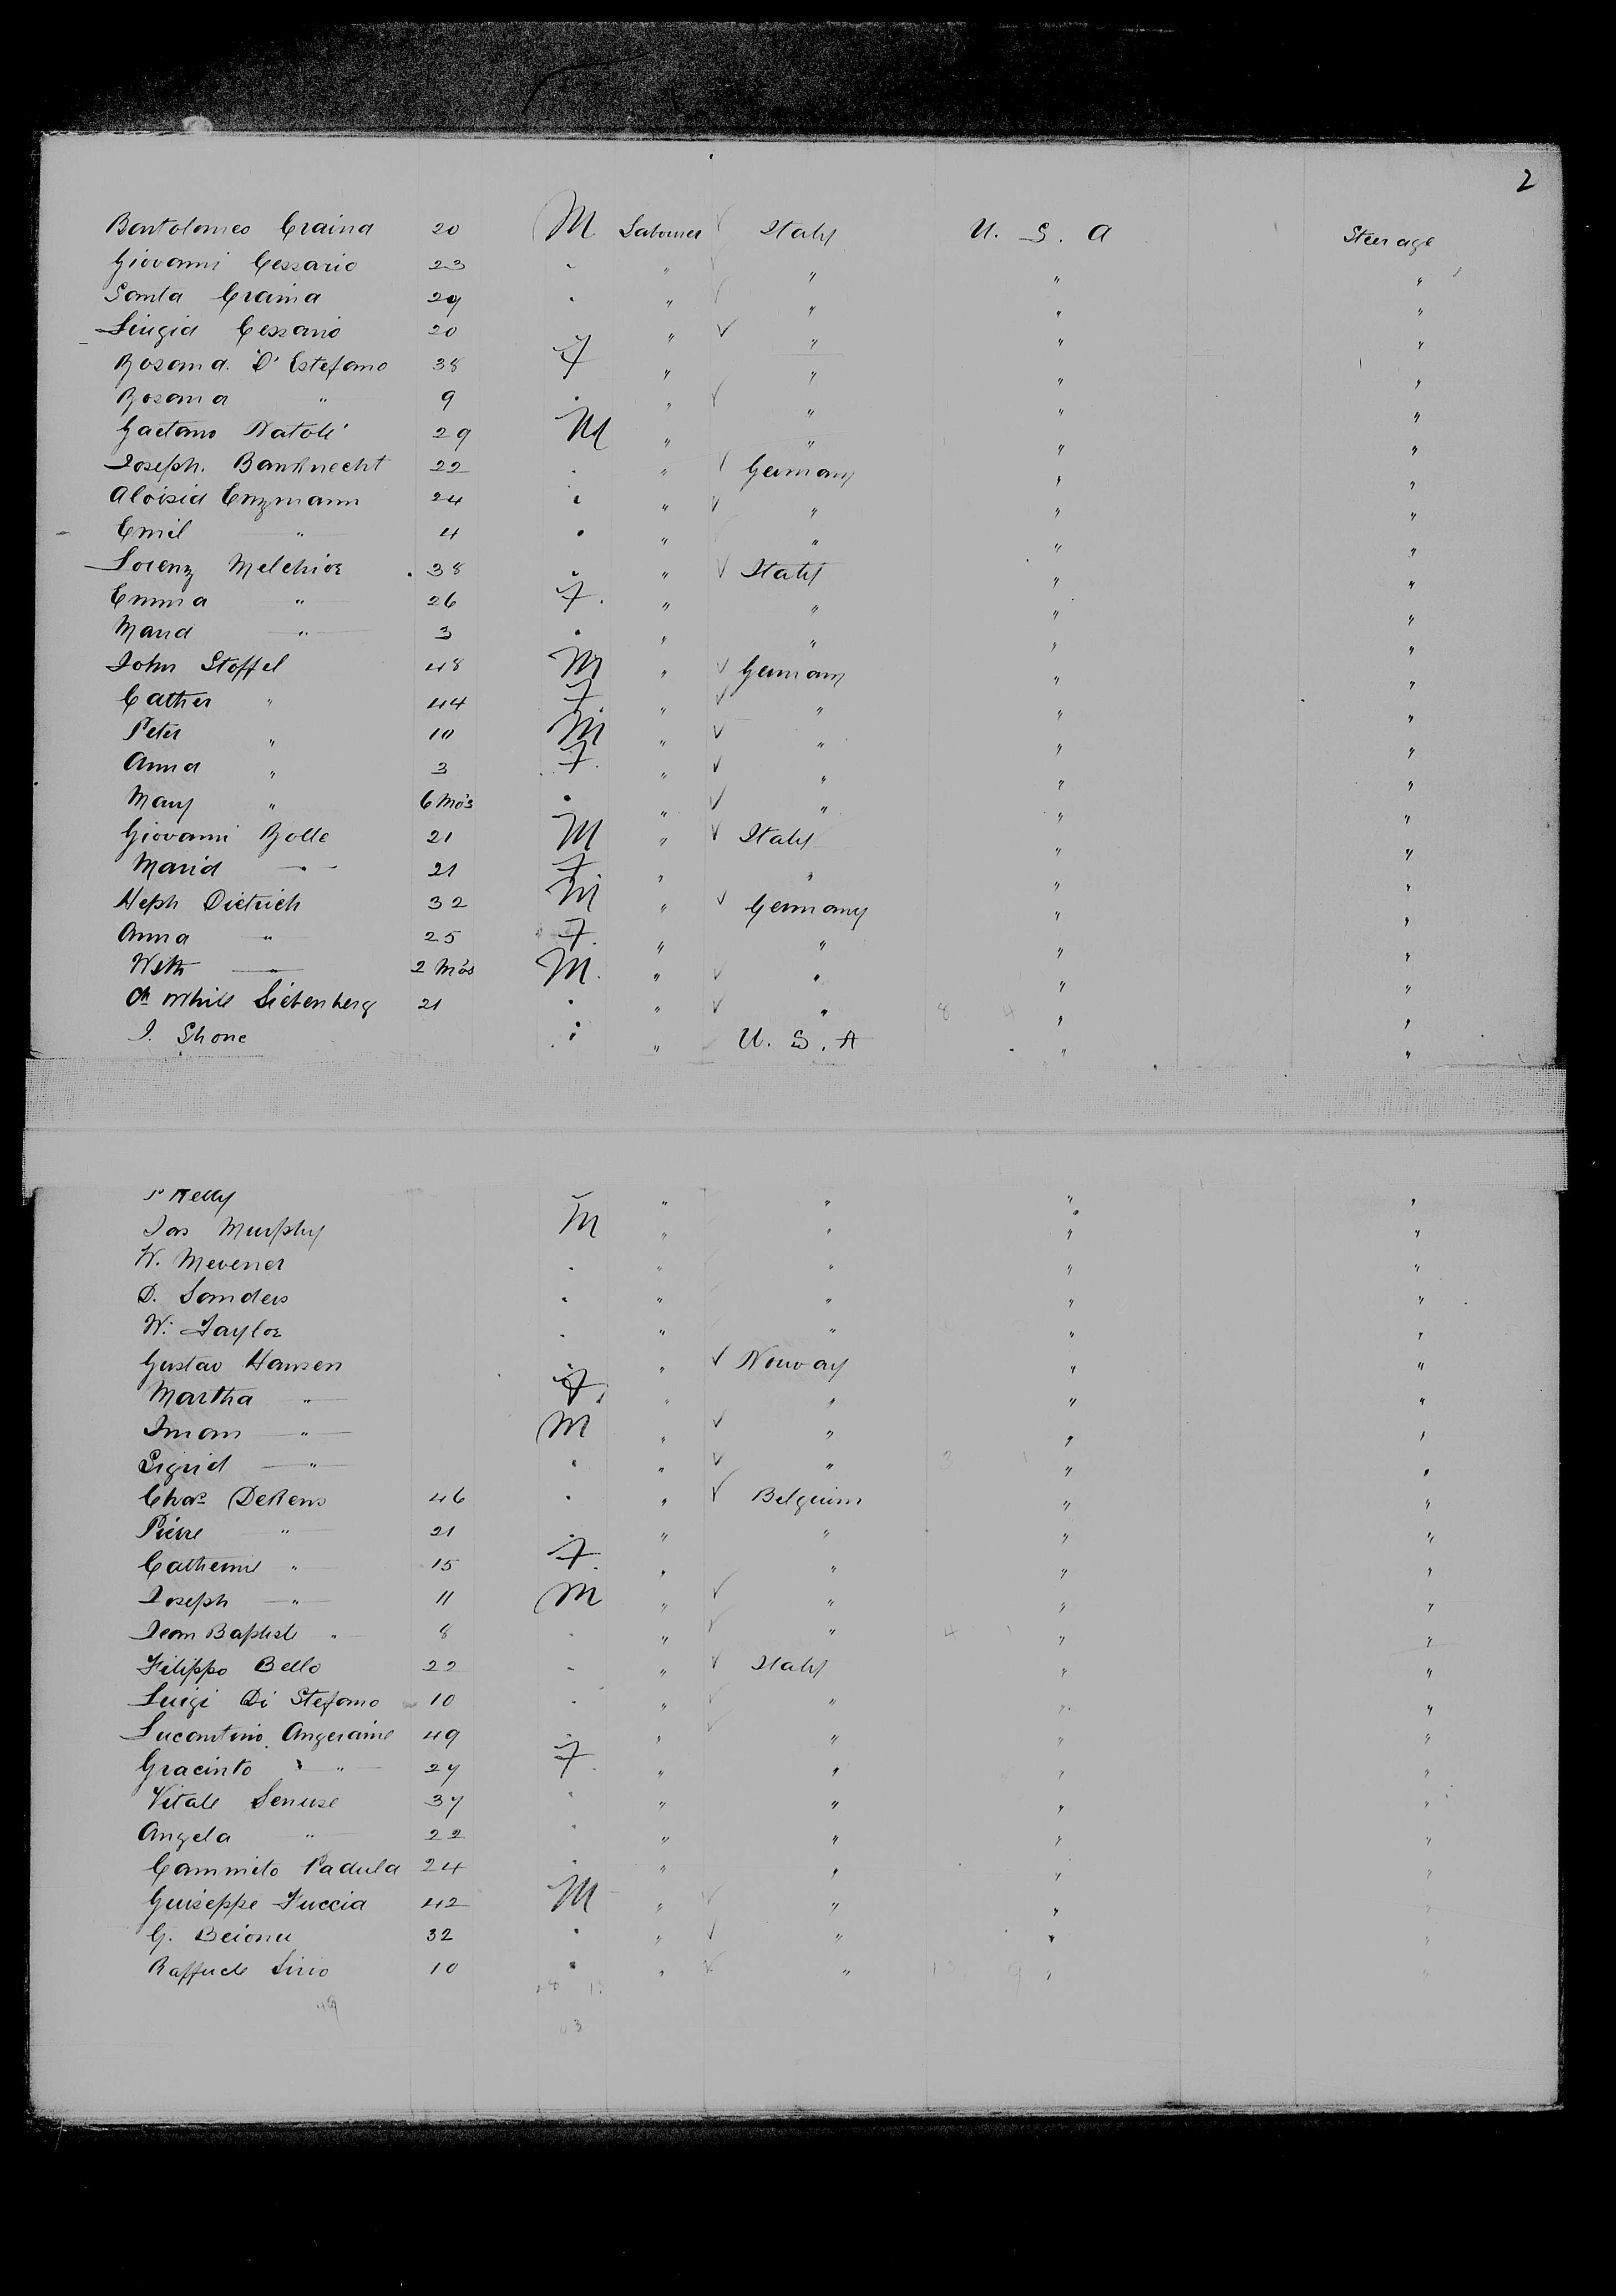 2
Bartolomeo Craina 20 M Laborer ✓ Italy U. S. A Steerage
Giovanni Cessario 23 " " ✓ " " "
Santa Craina 29 " " ✓ " " "
Luigia Cessario 20 " " ✓ " " "
Rosana. D' Estefano 38 F " " " "
Rosana " 9 " " ✓ " " "
Gaetano Natoli 29 M " " " "
Joseph. Bauknecht 22 " " ✓ Germany " "
Aloisia Enzmann 24 " " ✓ " " "
Emil " 4 " " " " "
Lorenz Melchior 38 " " ✓ Italy " "
Emma " 26 F. " " " "
Maria " 3 " " " " "
John Stoffel 48 M " ✓ Germany " "
Cather " 44 F " ✓ " " "
Peter " 10 M " ✓ " " "
Anna " 3 F. " ✓ " " "
Mary " 6 Mos " " ✓ " " "
Giovanni Rolle 21 M " ✓ Italy " "
Maria " 21 F " " " "
Heph Dietrich 32 M " ✓ Germany " "
Anna " 25 F. " " " "
With " 2 Mos M. " ✓ " " "
Siebenberg 21 " " ✓ " 8 4 " "
J. Shone " " U. S. A " "
P Kelly " " " "
Jas Murphy M " " " "
W. Mevener " " " " "
D. Sanders " " " " "
W. Taylor " " " " "
Gustav Hansen " " ✓ Norway " "
Martha " F. " " " "
" M " ✓ " " "
Sigrid " " " ✓ " 3 1 " "
Chas DeKens 46 " " ✓ Belgium " "
Pierre " 21 " " " " "
Catherine " 15 F. " " " "
Joseph " 11 M " ✓ " " "
Jean Baptiste " 8 " " ✓ " 4 1 " "
Filippo Bello 22 " " ✓ Italy " "
Luigi Di Stefano 10 " " ✓ " " "
Lucantino Angeraine 49 " " ✓ " " "
Gracinto " 27 F. " " " "
Vitale Senuse 37 " " " " "
Angela " 22 " " " " "
Cammito Padula 24 " " " " "
Guiseppe Fuccia 42 M " ✓ " " "
G. Beionu 32 " " ✓ " " "
Raffaele Sirio 10 " " ✓ " 13 9 " "
49